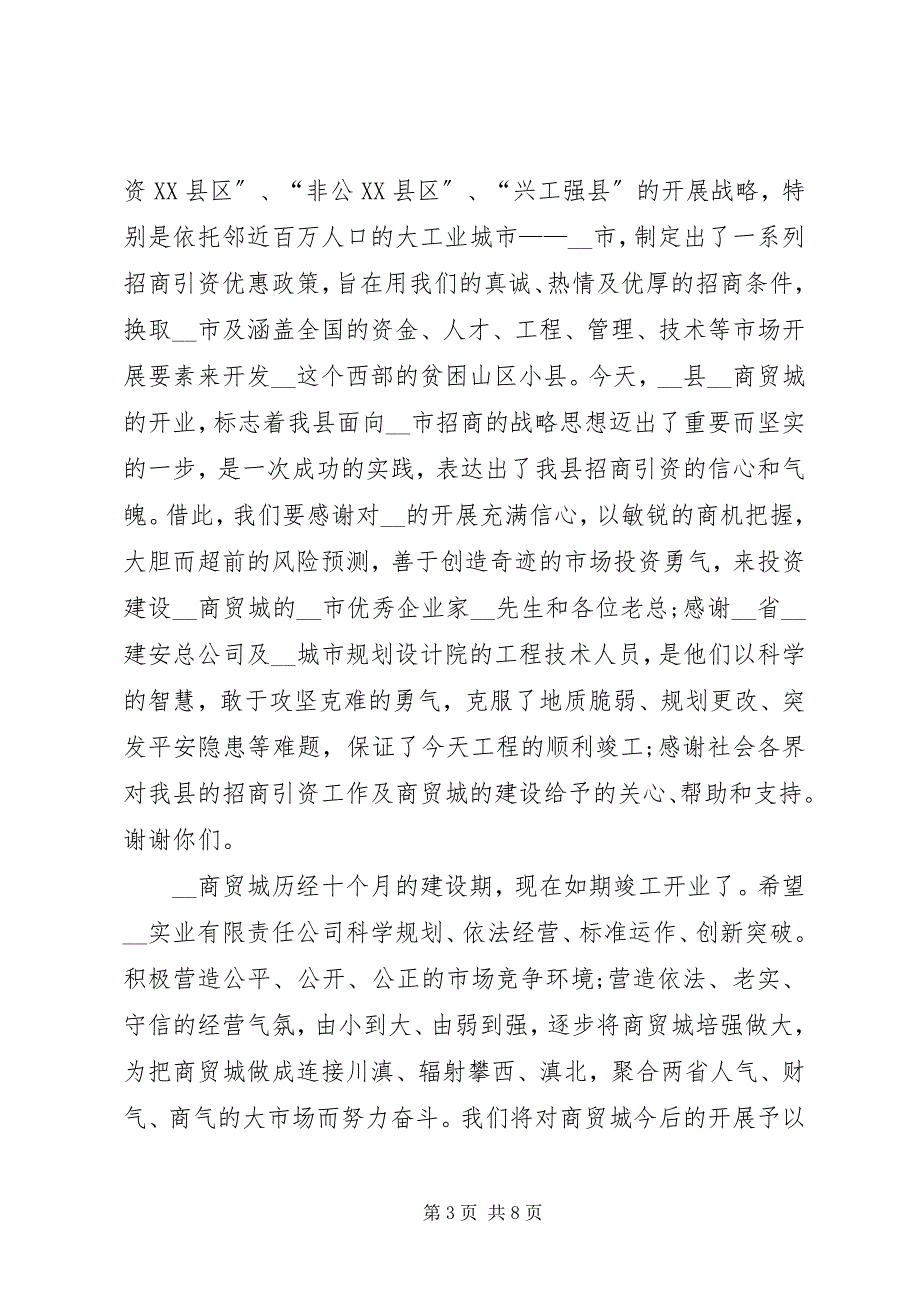 资 XX 县区〞、“非公 XX 县区〞、“兴工强县〞的开展战略，特
别是依托邻近百万人口的大工业城市——__市，制定出了一系列
招商引资优惠政策，旨在用我们的真诚、热情及优厚的招商条件，
换取__市及涵盖全国的资金、人才、工程、管理、技术等市场开
展要素来开发__这个西部的贫困山区小县。今天，__县__商贸城
的开业，标志着我县面向__市招商的战略思想迈出了重要而坚实
的一步，是一次成功的实践，表达出了我县招商引资的信心和气
魄。借此，我们要感谢对__的开展充满信心，以敏锐的商机把握，
大胆而超前的风险预测，善于创造奇迹的市场投资勇气，来投资
建设__商贸城的__市优秀企业家__先生和各位老总;感谢__省__
建安总公司及__城市规划设计院的工程技术人员，是他们以科学
的智慧，敢于攻坚克难的勇气，克服了地质脆弱、规划更改、突
发平安隐患等难题，保证了今天工程的顺利竣工;感谢社会各界
对我县的招商引资工作及商贸城的建设给予的关心、帮助和支持。
谢谢你们。
__商贸城历经十个月的建设期，现在如期竣工开业了。希望
__实业有限责任公司科学规划、依法经营、标准运作、创新突破。
积极营造公平、公开、公正的市场竞争环境;营造依法、老实、
守信的经营气氛，由小到大、由弱到强，逐步将商贸城培强做大，
为把商贸城做成连接川滇、辐射攀西、滇北，聚合两省人气、财
气、商气的大市场而努力奋斗。我们将对商贸城今后的开展予以
第 3 页 共 8 页